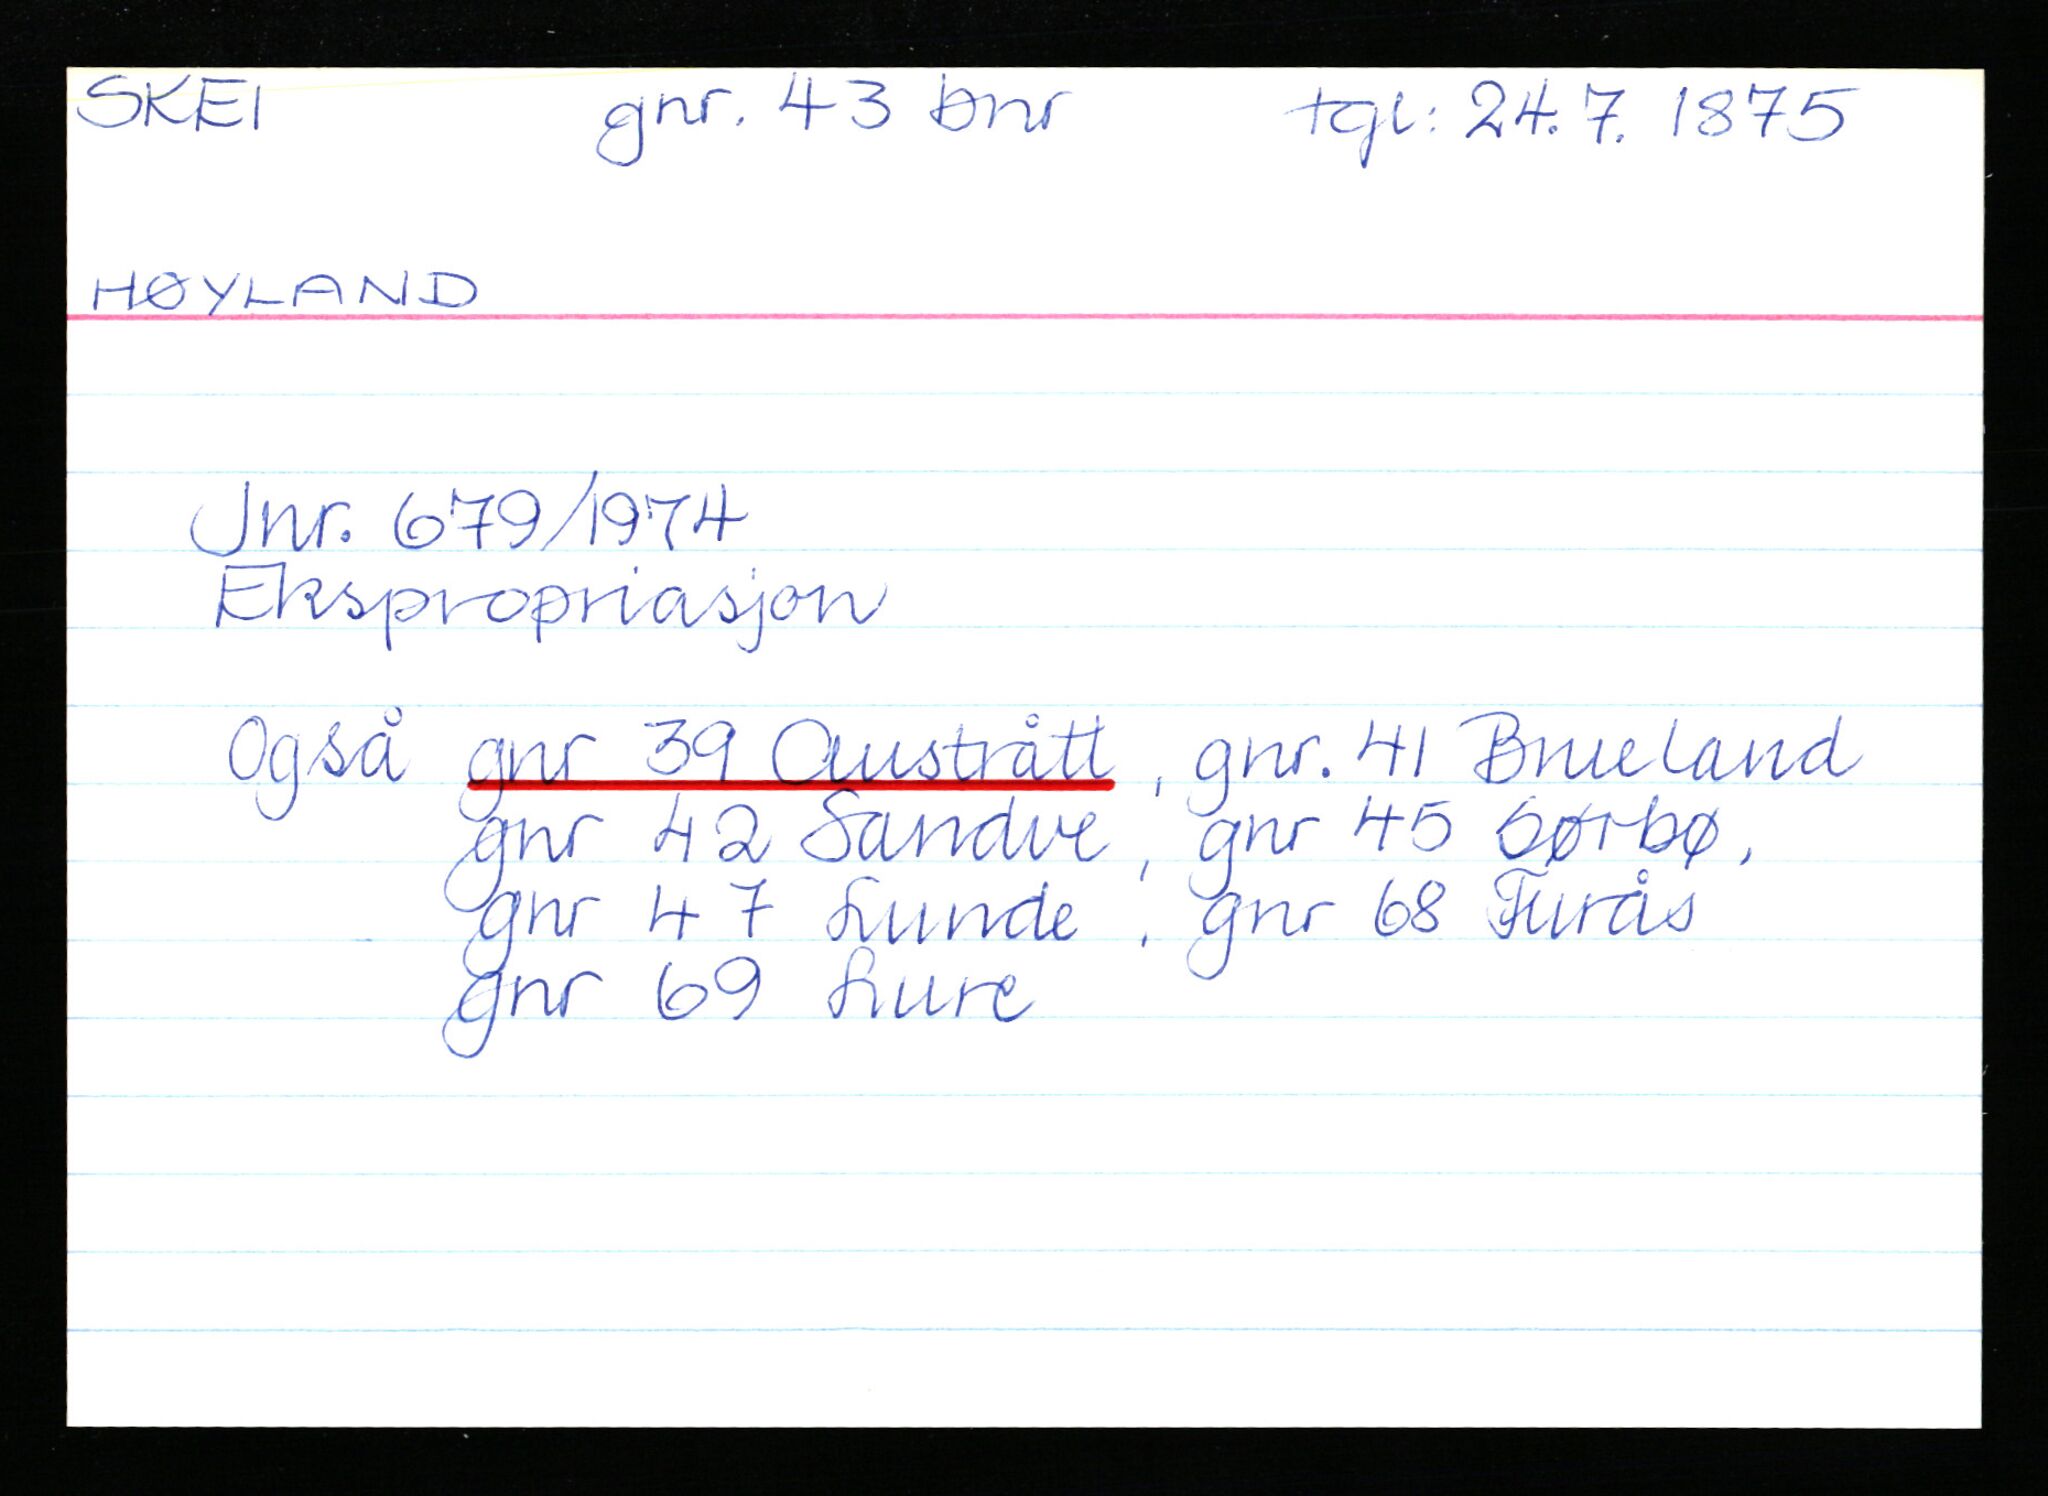 SKEI gnr. 43 bnr tgl: 24.7. 1875
HØYLAND
Jnr. 679/1974
Ekspropriasjon
Også gnr 39 Austrått, gnr. 41 Brueland
gnr 42 Sandve, gnr 45 Sørbø,
gnr 47 Lunde, gnr 68 Furås
gnr 69 Lure